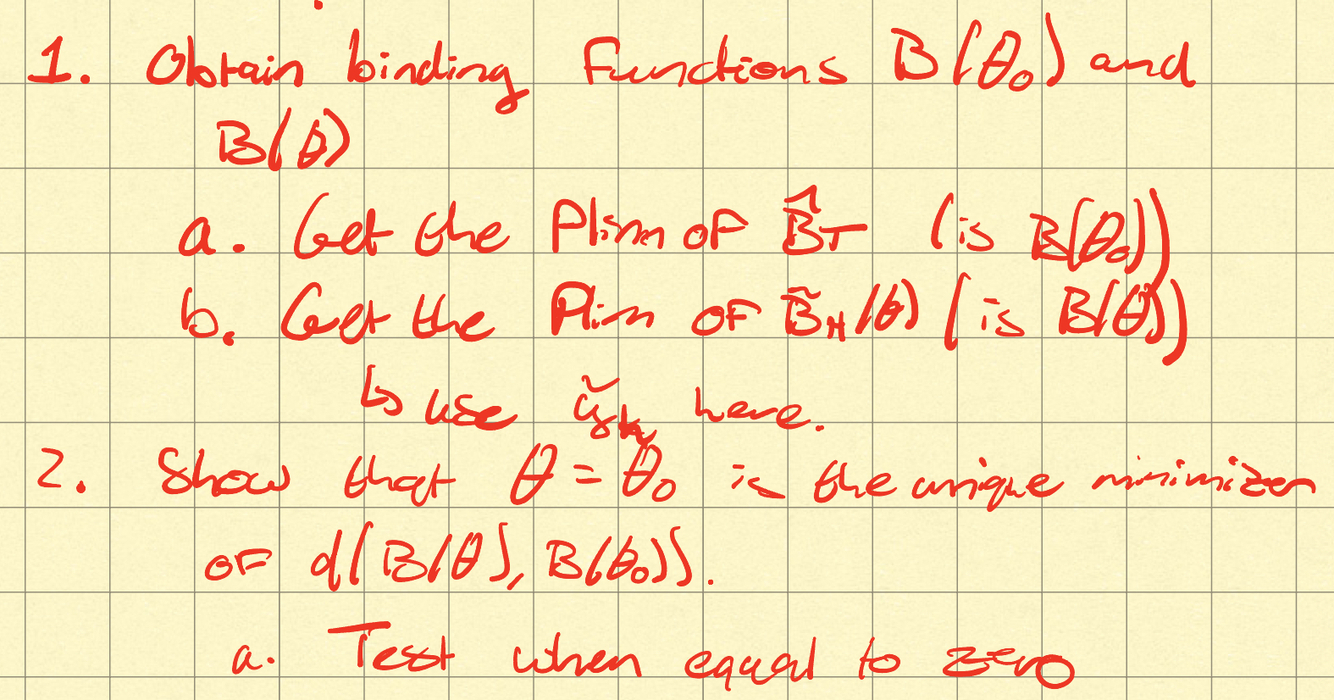 1. Obtain binding functions B(θ₀) and
B(θ)
a. Get the Plim of B̂_T (is B(θ₀))
b. Get the Plim of B̃_H(θ) (is B(θ))
↳ use ỹ_k here.
2. Show that θ = θ₀ is the unique minimizer
of d(B(θ), B(θ₀)).
a. Test when equal to zero